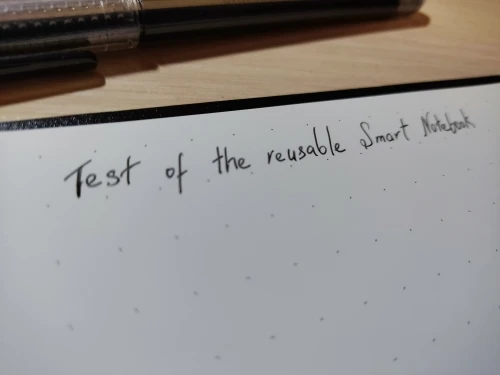 Test of the reusable Smart Notebook